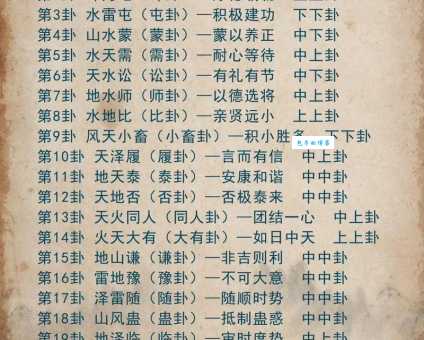 第3卦 水雷屯（屯卦）—积极建功 下下卦
第4卦 山水蒙（蒙卦）—蒙以养正 中下卦
第5卦 水天需（需卦）—耐心等待 中上卦
第6卦 天水讼（讼卦）—有礼有节 中下卦
第7卦 地水师（师卦）—以德选将 中上卦
第8卦 水地比（比卦）—亲贤远小 上上卦
第9卦 风天小畜（小畜卦）—积小胜多 下下卦
第10卦 天泽履（履卦）—言而有信 中上卦
第11卦 地天泰（泰卦）—安康和谐 中中卦
第12卦 天地否（否卦）—否极泰来 中中卦
第13卦 天火同人（同人卦）—团结一心 中上卦
第14卦 火天大有（大有卦）—如日中天 上上卦
第15卦 地山谦（谦卦）—非吉则利 中中卦
第16卦 雷地豫（豫卦）—不可大意 中中卦
第17卦 泽雷随（随卦）—随顺时势 中中卦
第18卦 山风蛊（蛊卦）—抵制蛊惑 中中卦
第19卦 地泽临（临卦）—审时度势 中上卦